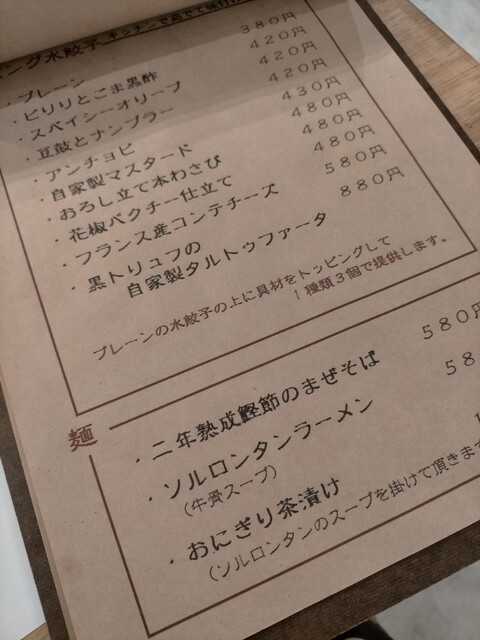 ング水餃子 キッチンで
・プレーン 380円
・ピリリとごま黒酢 420円
・スパイシーオリーブ 420円
・豆鼓とナンプラー 420円
・アンチョビ 430円
・自家製マスタード 480円
・おろし立て本わさび 480円
・花椒パクチー仕立て 480円
・フランス産コンテチーズ 580円
・黒トリュフの 880円
自家製タルトゥファータ
プレーンの水餃子の上に具材をトッピングして
1種類3個で提供します。
麺
・二年熟成鰹節のまぜそば 580円
・ソルロンタンラーメン 58
（牛骨スープ）
・おにぎり茶漬け
（ソルロンタンのスープを掛けて頂きま